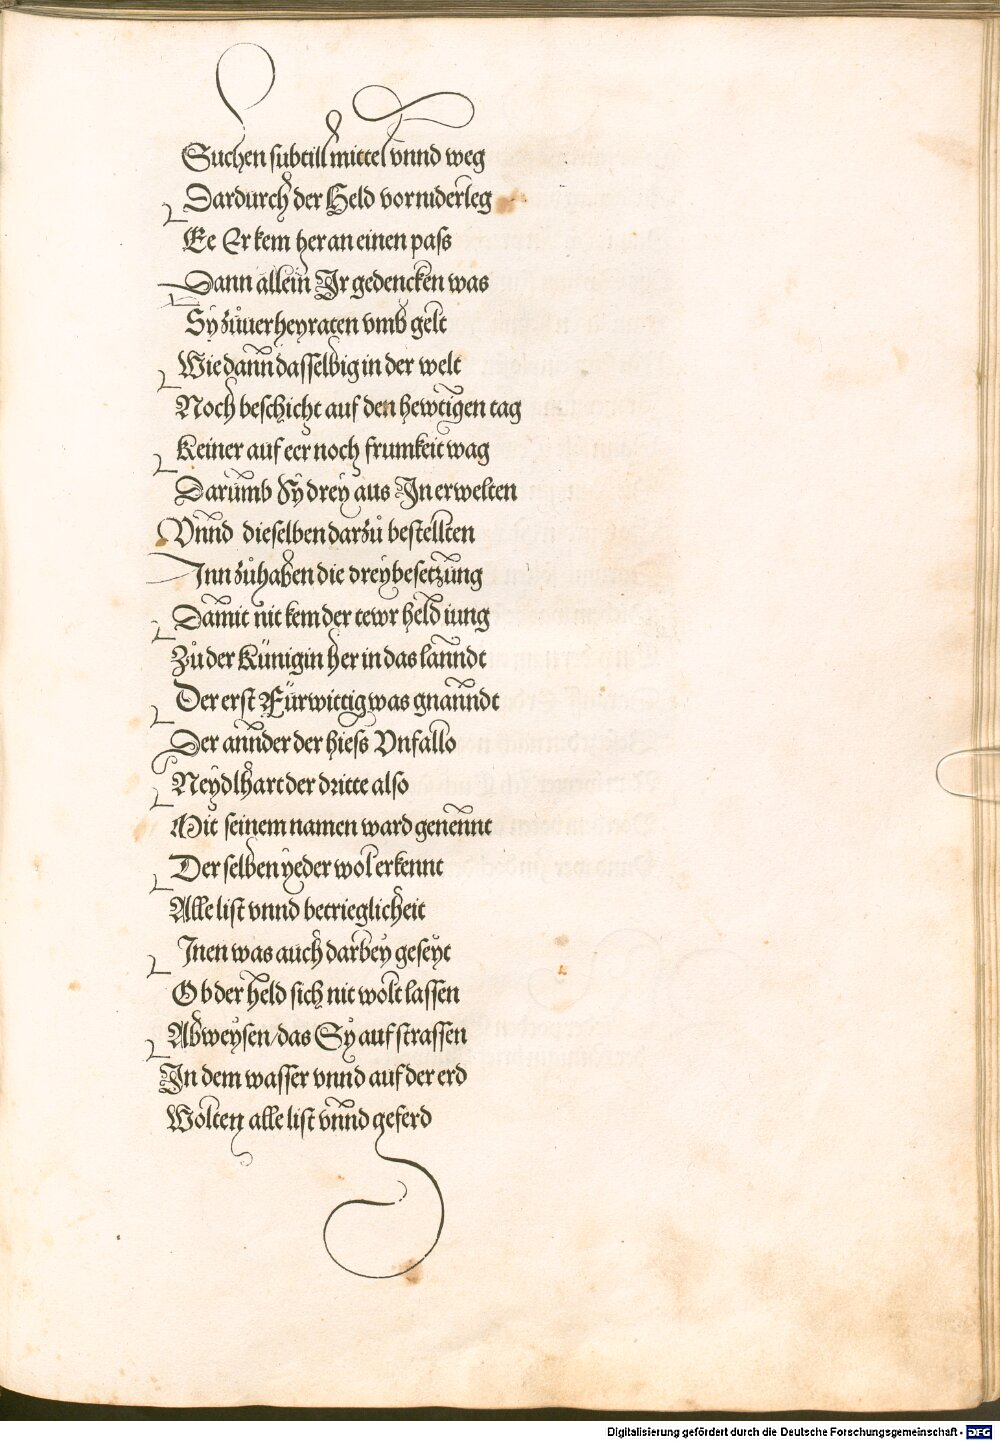 Suchen subtill mittel vnnd weg
Dardurch der Held vor niderleg
Ee Er kem her an einen paſs
Dann allein Jr gedencken was
Sÿ zůuerheyraten vmb gelt
Wie dann daſſelbig in der welt
Noch beſchicht auf den hewtigen tag
Keiner auf eer noch frumkeit wag
Darumb Sÿ dreÿ aus In erwelten
Vnnd dieſelben darzů beſtellten
Inn zůhaben die dreÿ beſetzung
Damit nit kem der tewr held iung
Zů der Künigin her in das lanndt
Der erſt Fürwittig was gnanndt
Der annder der hieſs Vnfallo
Neÿdlhart der dritte alſo
Mit ſeinem namen ward genennt
Der ſelben ÿeder wol erkennt
Alle liſt vnnd betrieglicheit
Inen was auch darbeÿ geſeÿt
Ob der held ſich nit wolt laſſen
Abweÿſen/das Sÿ auf ſtraſſen
In dem waſſer vnnd auf der erd
Wolten alle liſt vnnd geferd
Digitalisierung gefördert durch die Deutsche Forschungsgemeinschaft - DFG